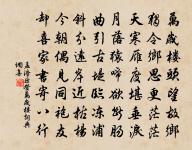 萬歲樓頭望故鄉
獨令鄉思更茫茫
天寒雁度堪垂淚
月落猿啼欲斷腸
曲引古堤臨凍浦
斜分遠岸近枯楊
今朝偶見同袍友
却喜家書寄八行
孟浩然登萬歲樓詞典